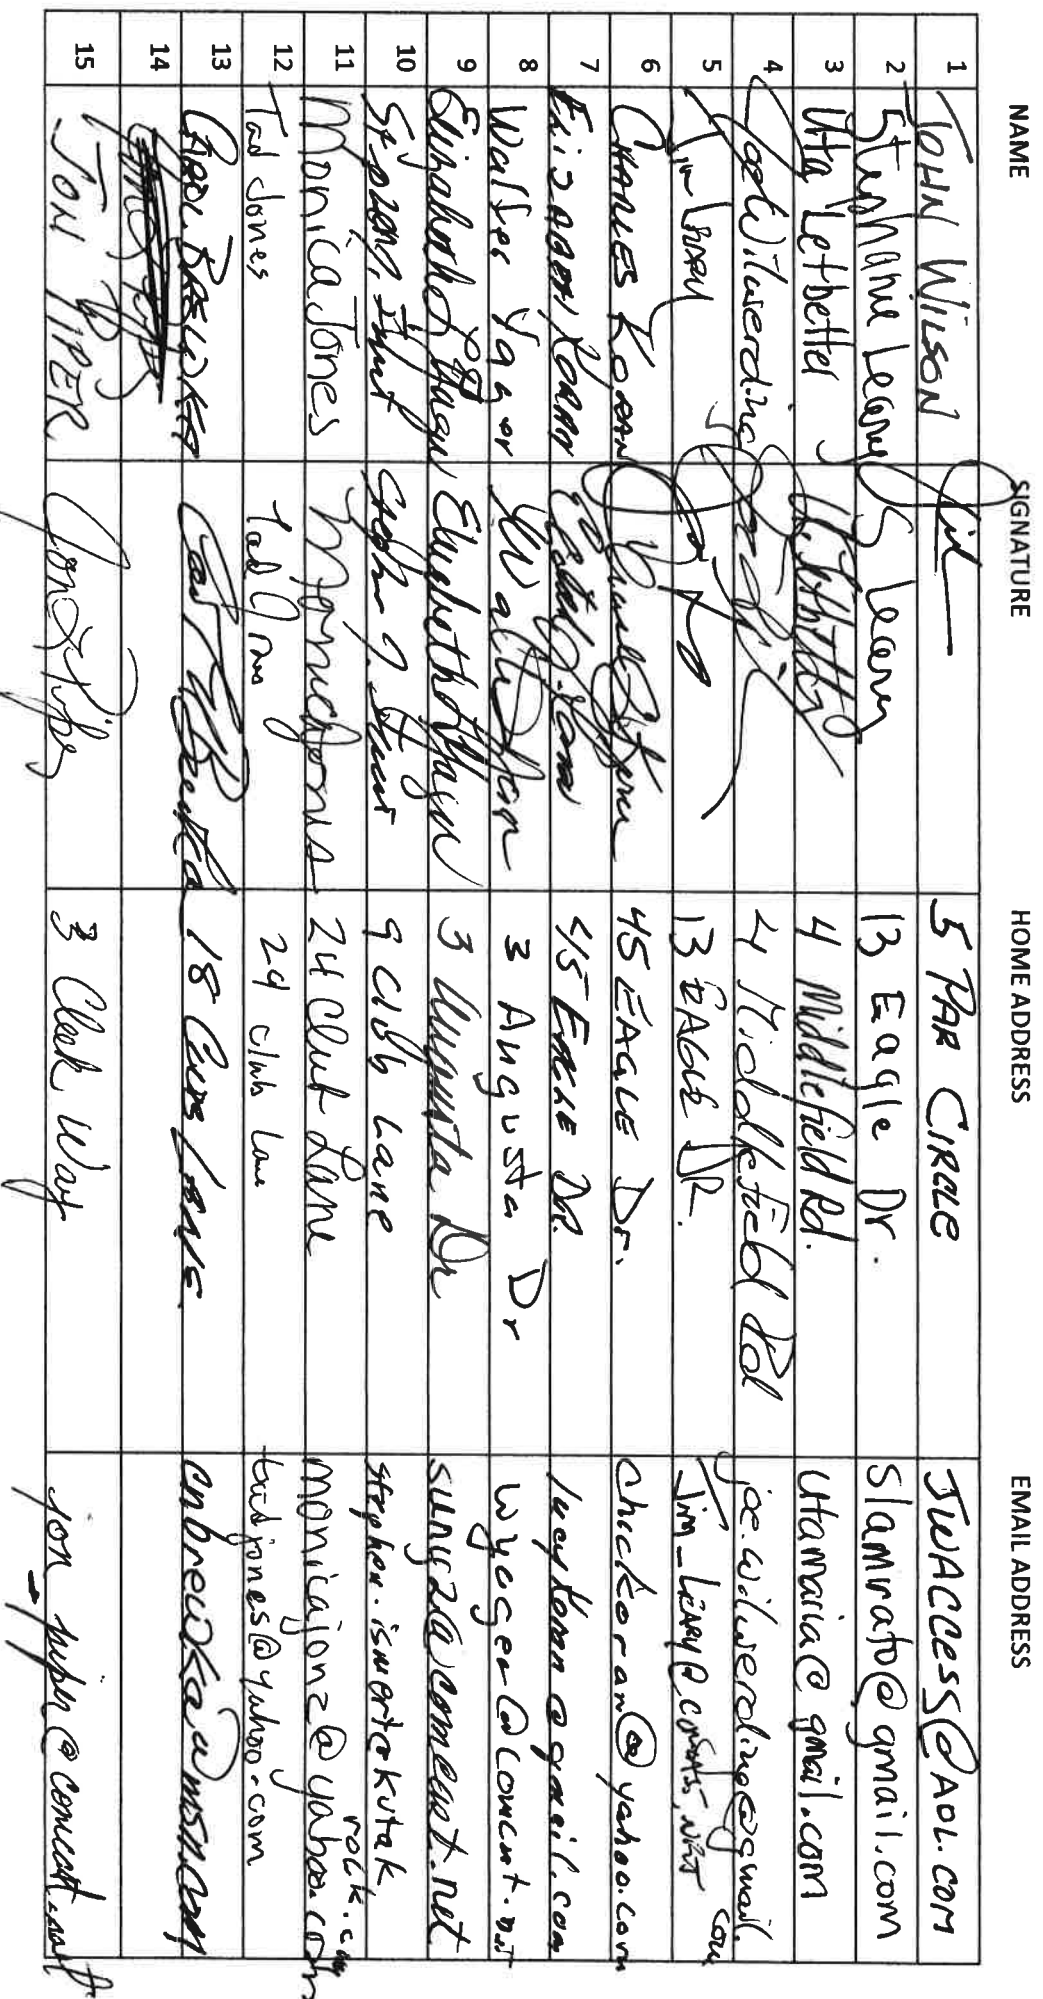 NAME SIGNATURE HOME ADDRESS EMAIL ADDRESS
1 JOHN WILSON 5 PAR CIRCLE JWACCESS@AOL.COM
2 Stephanie Leary S Leary 13 Eagle Dr. Slamrato@gmail.com
3 Uta Letbetter 4 Middlefield Rd. utamaria@gmail.com
4 Joe Wilwerding 4 Middlefield Rd joe.wilwerding@gmail.com
5 Jim LEARY 13 EAGLE DR. Jim_LEARY@COMCAST.NET
6 CHARLES KORAN 45 EAGLE Dr. chuckoran@yahoo.com
7 45 EAGLE DR. lucykoran@gmail.com
8 Walter Yager 3 Augusta Dr wyager@comcast.net
9 Elizabeth Yager Elizabeth Yager 3 Augusta Dr @comcast.net
10 9 Club Lane stephen.ismert@kutakrock.com
11 Monica Jones Monica Jones 24 Club Lane monicajonz@yahoo.com
12 Tad Jones Tad Jones 24 club Lane tadjones@yahoo.com
13 18 CLUB LANE
14
15 JON PIPER Jon Piper 3 Cleek Way jon_piper@comcast.net